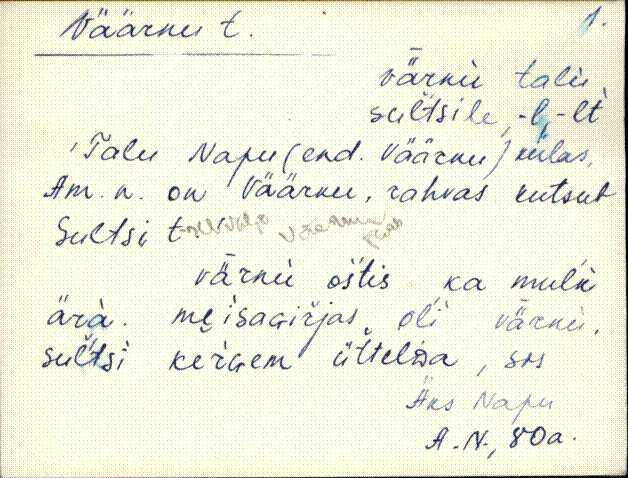 Väärnu t.
1.
värnu talu
sultsile, -l, -lt
Talu Napu (end. Väärnu) külas.
Am. n. on Väärnu, rahvas kutsub
Sultsi t
värnu ostis ka mulk
ärà. meisagirjas oli värnu,
sultsi kergem üttelda, sos
Äks Napu
A.N., 80a.